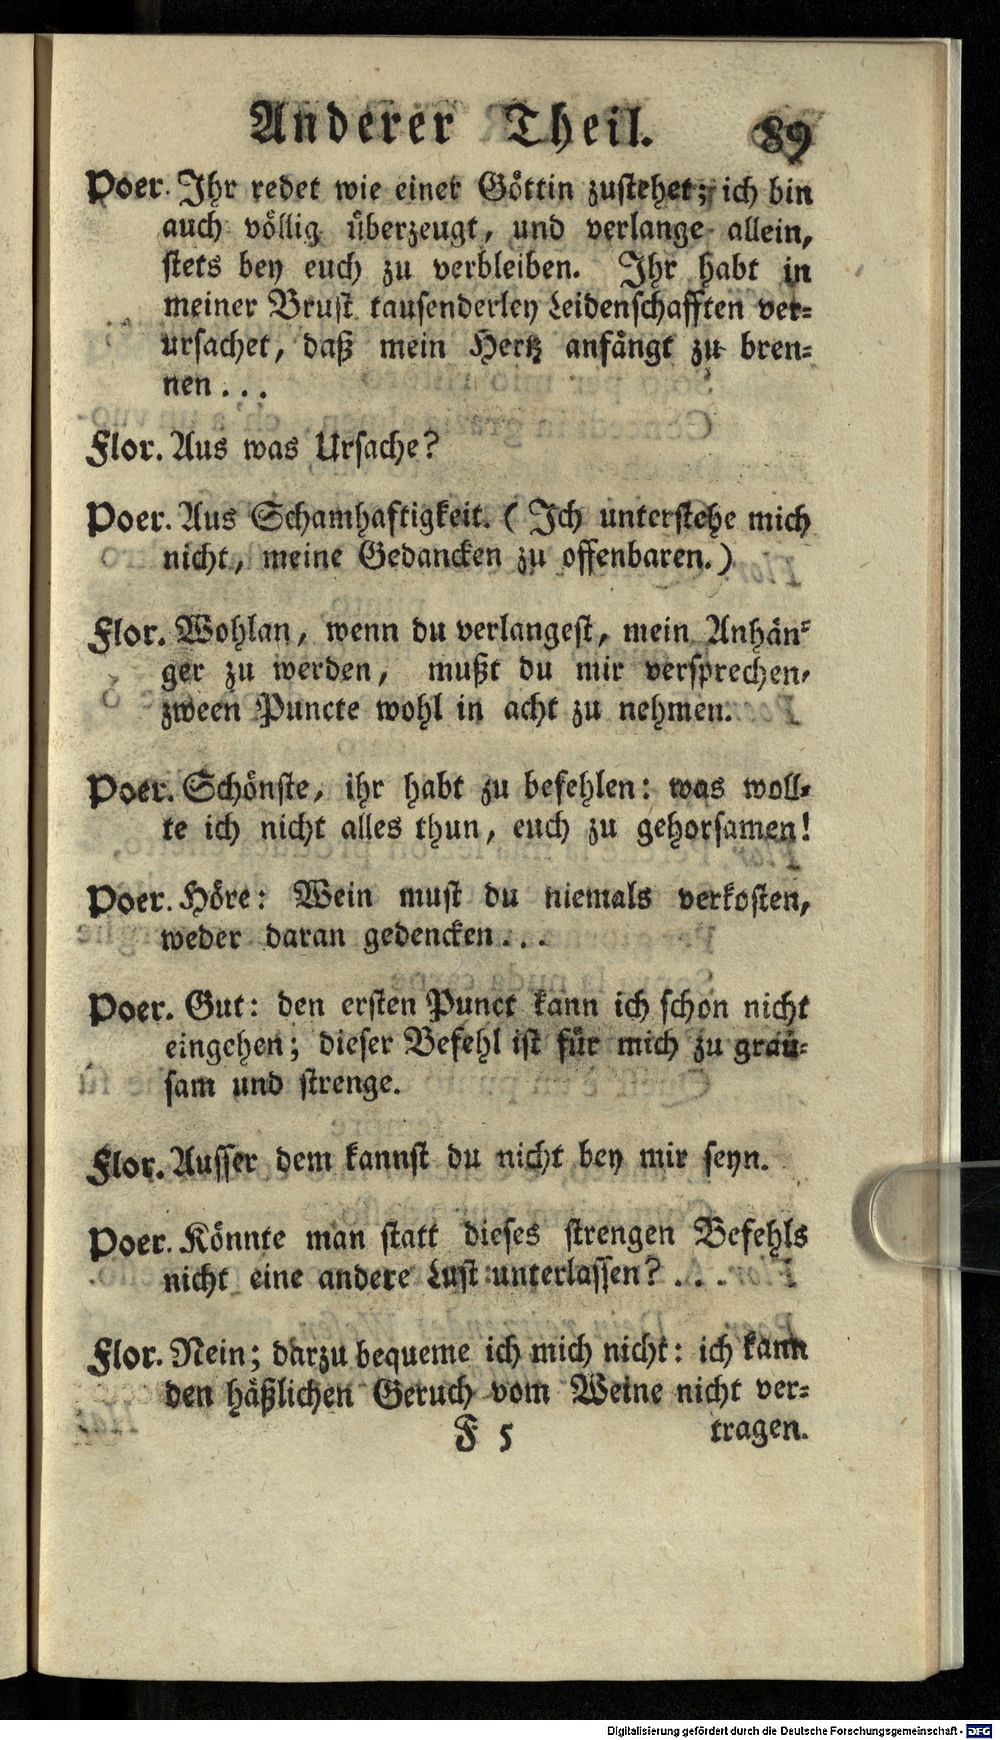 Anderer Theil. 89
Poer. Ihr redet wie einer Göttin zustehet; ich bin
auch völlig überzeugt, und verlange allein,
stets bey euch zu verbleiben. Ihr habt in
meiner Brust tausenderley Leidenschafften ver-
ursachet, daß mein Hertz anfängt zu bren-
nen...
Flor. Aus was Ursache?
Poer. Aus Schamhaftigkeit. (Ich unterstehe mich
nicht, meine Gedancken zu offenbaren.)
Flor. Wohlan, wenn du verlangest, mein Anhän-
ger zu werden, mußt du mir versprechen,
zween Puncte wohl in acht zu nehmen.
Poer. Schönste, ihr habt zu befehlen: was woll-
te ich nicht alles thun, euch zu gehorsamen!
Poer. Höre: Wein must du niemals verkosten,
weder daran gedencken...
Poer. Gut: den ersten Punct kann ich schon nicht
eingehen; dieser Befehl ist für mich zu grau-
sam und strenge.
Flor. Ausser dem kannst du nicht bey mir seyn.
Poer. Könnte man statt dieses strengen Befehls
nicht eine andere Lust unterlassen? ...
Flor. Nein; darzu bequeme ich mich nicht: ich kann
den häßlichen Geruch vom Weine nicht ver-
F 5 tragen.
Digitalisierung gefördert durch die Deutsche Forschungsgemeinschaft - DFG